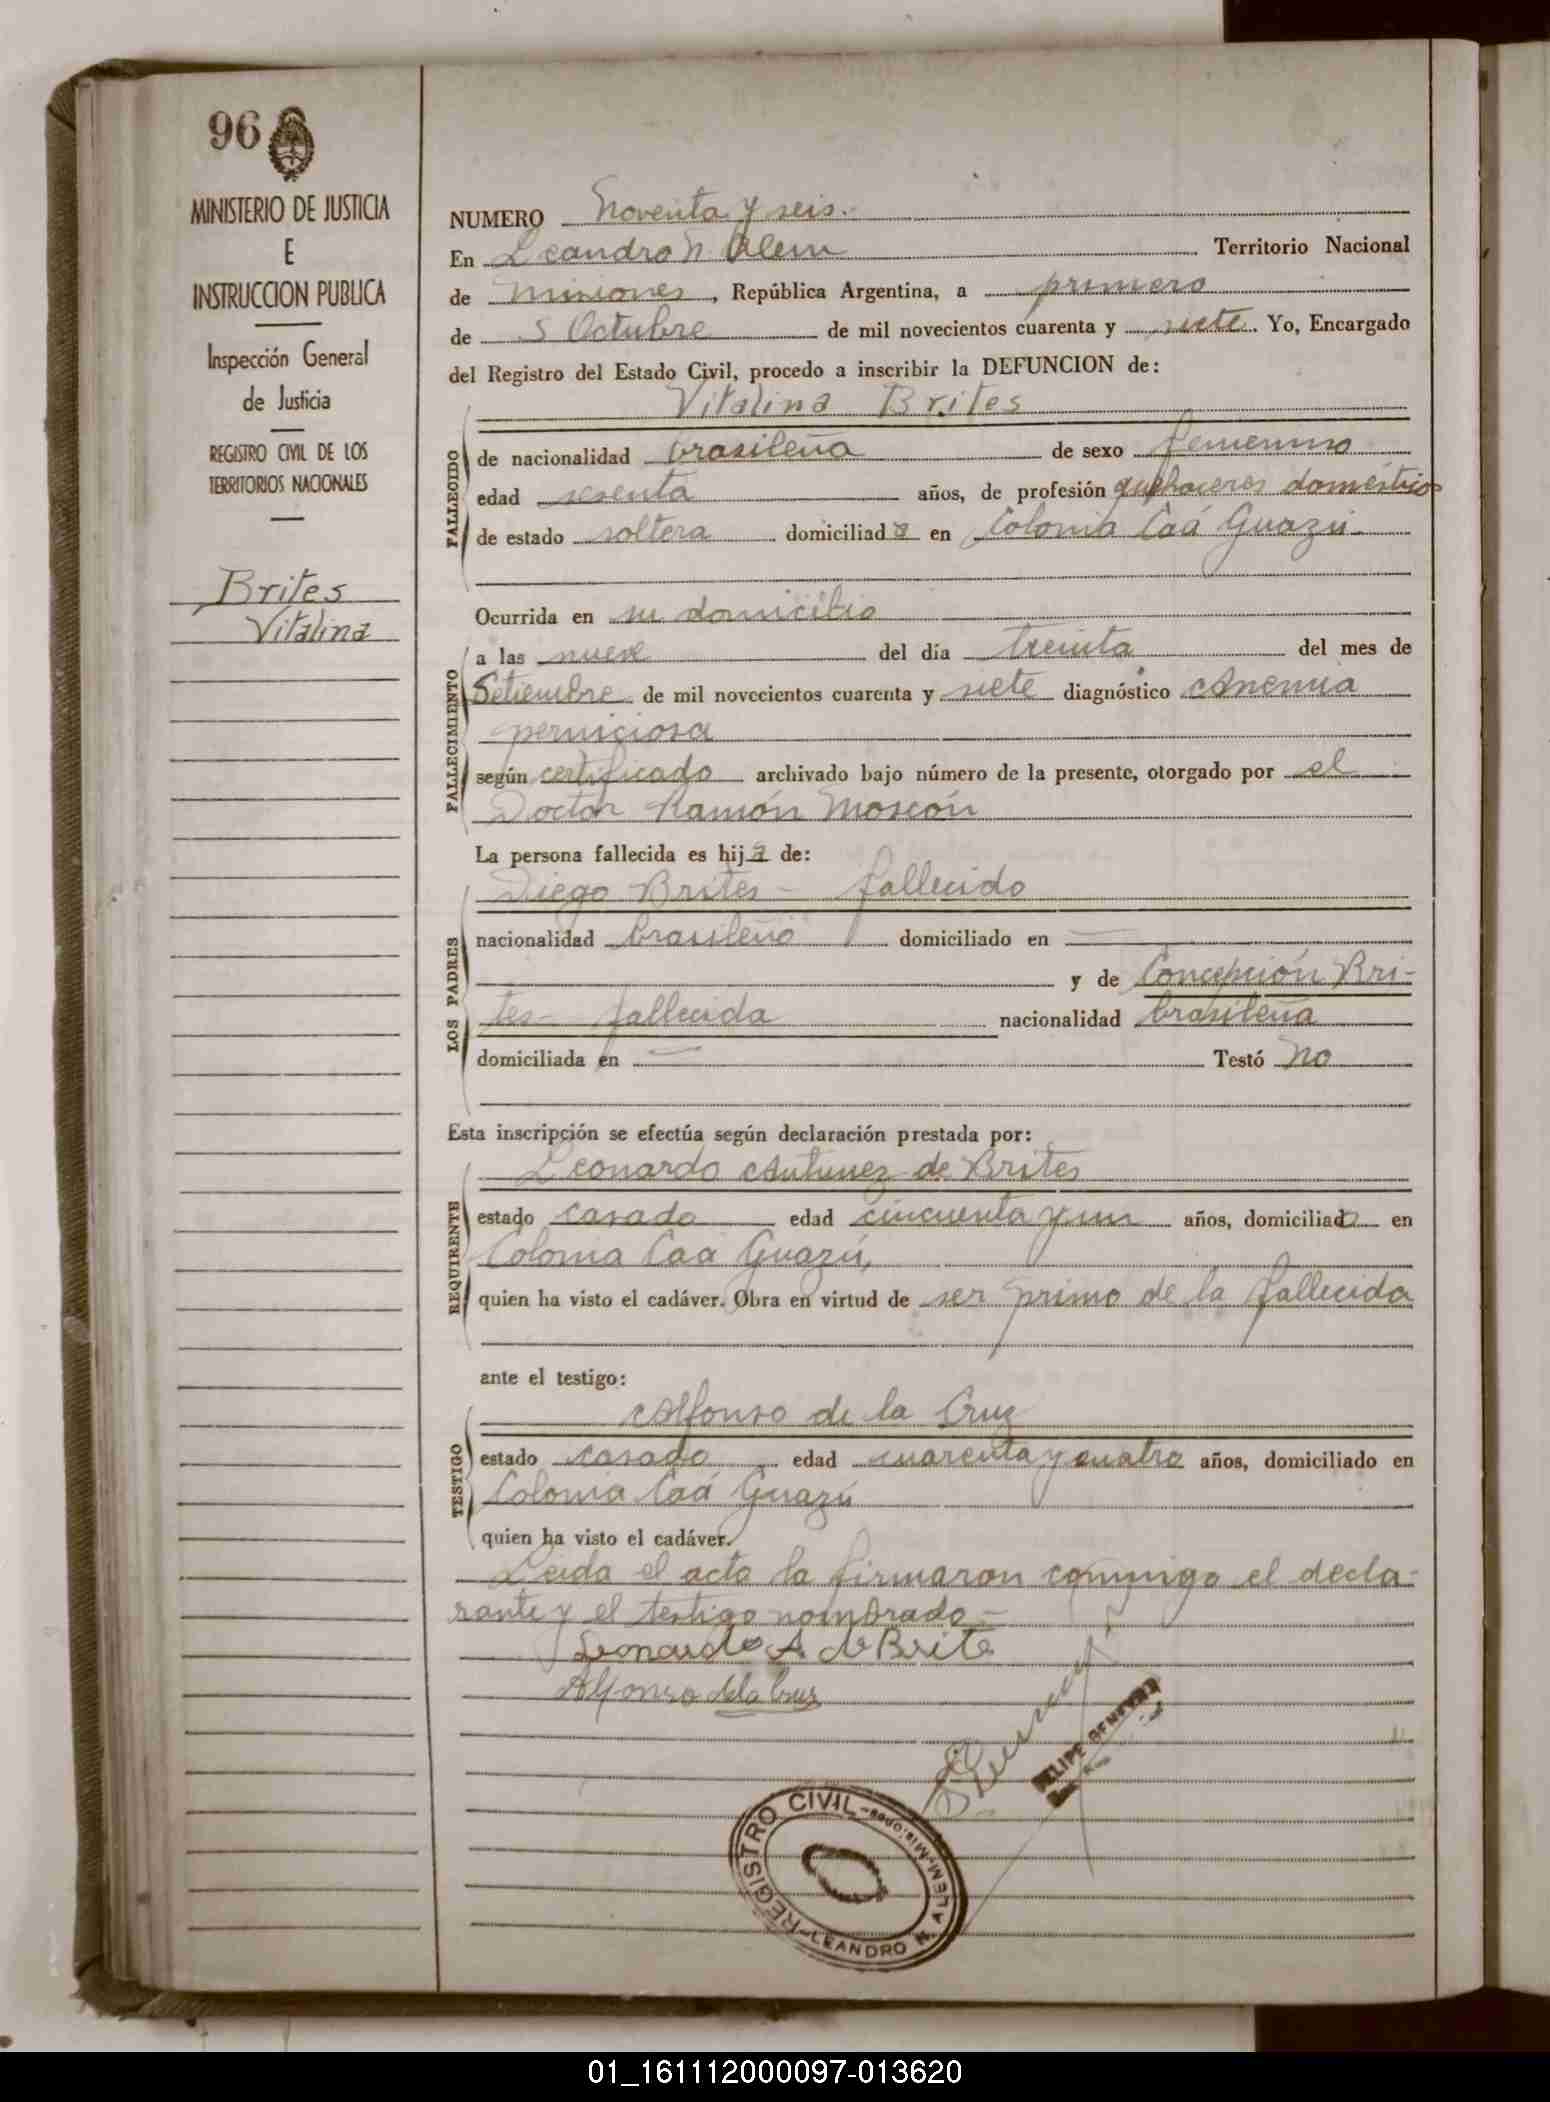 96
MINISTERIO DE JUSTICIA
E
INSTRUCCION PUBLICA
Inspección General
de Justicia
REGISTRO CIVIL DE LOS
TERRITORIOS NACIONALES
Brites
Vitalina
NUMERO Noventa y seis.
En Leandro N. Alem Territorio Nacional
de Misiones, República Argentina, a primero
de Octubre de mil novecientos cuarenta y siete. Yo, Encargado
del Registro del Estado Civil, procedo a inscribir la DEFUNCION de:
Vitalina Brites
FALLECIDO
de nacionalidad brasileña de sexo femenino
edad sesenta años, de profesión quehaceres domésticos
de estado soltera domiciliada en Colonia Caá Guazú
Ocurrida en su domicilio
FALLECIMIENTO
a las nueve del día treinta del mes de
Setiembre de mil novecientos cuarenta y siete diagnóstico Anemia
perniciosa
según certificado archivado bajo número de la presente, otorgado por el
Doctor Ramón Moscón
La persona fallecida es hija de:
Diego Brites - fallecido
LOS PADRES
nacionalidad brasileño domiciliado en —
y de Concepción Bri-
tes - fallecida nacionalidad brasileña
domiciliada en — Testó No
Esta inscripción se efectúa según declaración prestada por:
Leonardo Antunez de Brites
REQUIRENTE
estado casado edad cincuenta y un años, domiciliado en
Colonia Caá Guazú,
quien ha visto el cadáver. Obra en virtud de ser primo de la fallecida
ante el testigo:
Alfonso de la Cruz
TESTIGO
estado casado edad cuarenta y cuatro años, domiciliado en
Colonia Caá Guazú
quien ha visto el cadáver.
Leida el acta la firmaron conmigo el decla-
rante y el testigo nombrado.-
Leonardo A de Brite
Alfonso dela Cruz
FELIPE
REGISTRO CIVIL
LEANDRO N. ALEM-Misiones-
01_161112000097-013620